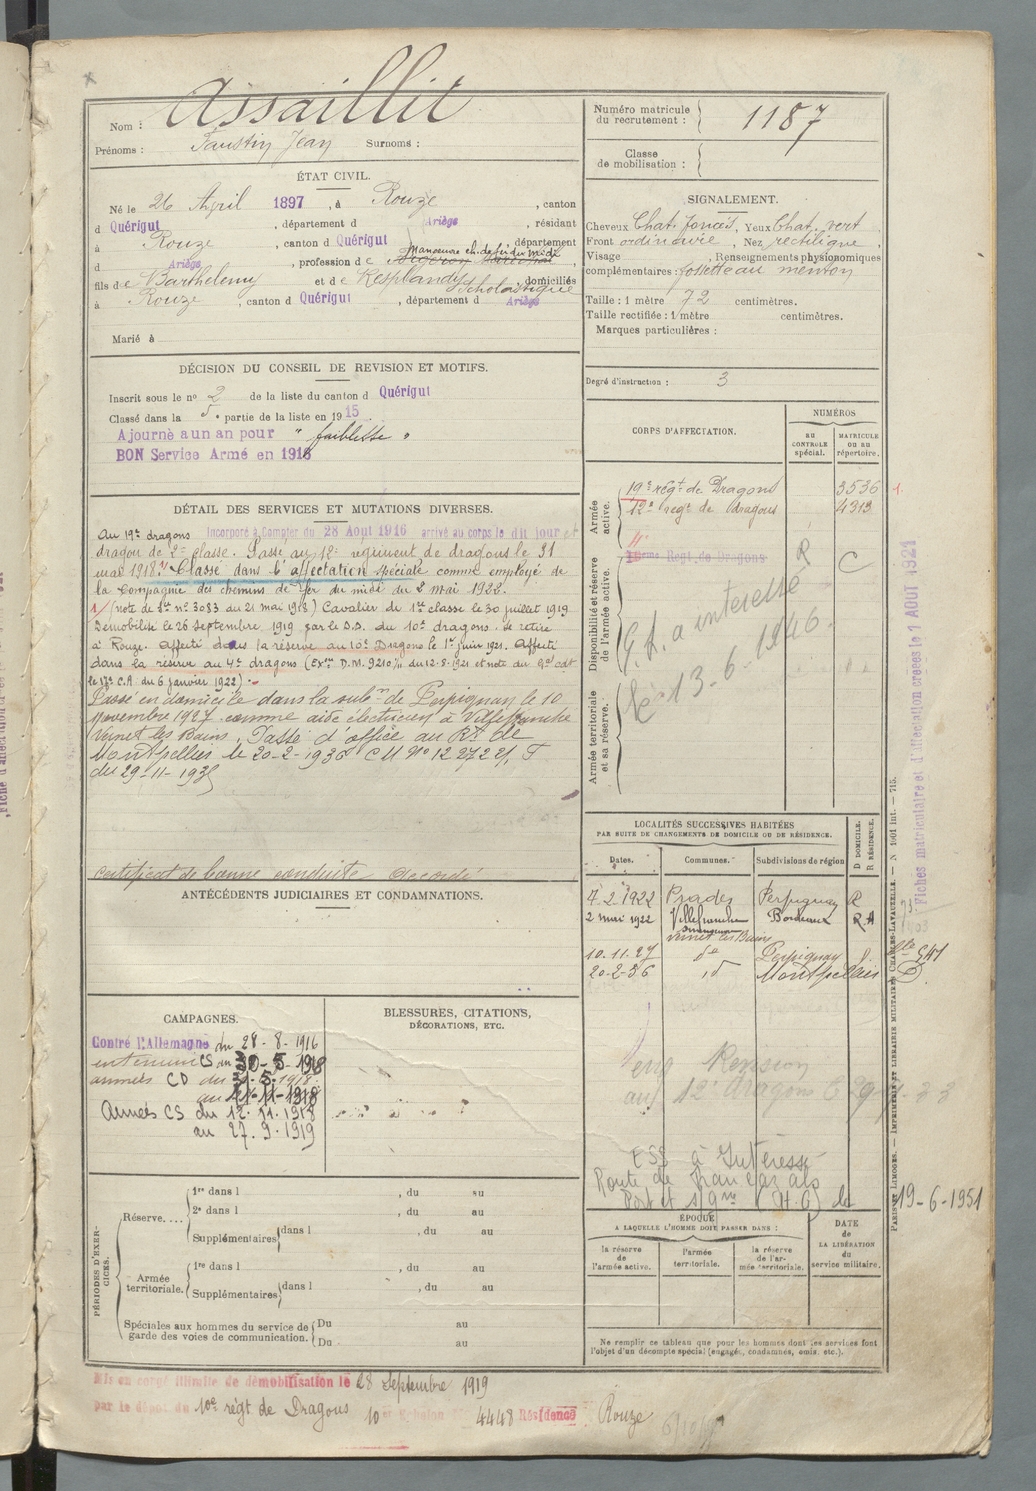 Nom : Assaillit
Prénoms : Faustin Jean Surnoms :
Numéro matricule du recrutement : 1187
Classe de mobilisation :
ÉTAT CIVIL.
Né le 26 April 1897, à Rouze, canton
d Quérigut, département d Ariège, résidant
à Rouze, canton d Quérigut, département
d Ariège, profession de manoeuvre ch. de fer du midi
fils de Barthelemy et de Resplandy Scholastique, domiciliés
à Rouze, canton d Quérigut, département d Ariège
Marié à
SIGNALEMENT.
Cheveux Chat. foncés, Yeux Chat. vert
Front ordinaire, Nez rectiligne,
Visage , Renseignements physionomiques
complémentaires : fossette au menton
Taille : 1 mètre 72 centimètres.
Taille rectifiée : 1 mètre centimètres.
Marques particulières :
Degré d'instruction : 3
DÉCISION DU CONSEIL DE REVISION ET MOTIFS.
Inscrit sous le no 2 de la liste du canton d Quérigut
Classé dans la 5e partie de la liste en 1915.
Ajourné a un an pour " faiblesse "
BON Service Armé en 1916
CORPS D'AFFECTATION.
NUMÉROS
AU CONTRÔLE spécial.
MATRICULE OU AU répertoire.
Armée active.
19e régt de Dragons 3536 1.
12e regt de dragons 4313
Disponibilité et réserve de l'armée active.
Regt. de Dragons R C
G.L. a interessé
le 13-6-1946.
Armée territoriale et sa réserve.
DÉTAIL DES SERVICES ET MUTATIONS DIVERSES.
Au 19e dragons Incorporé à Compter du 28 Août 1916 arrivé au corps le dit jour et
dragon de 2e classe. Passé au 12e regiment de dragons le 31
mai 1918. Classé dans l'affectation spéciale comme employé de
la Compagnie des chemins de fer du midi du 2 mai 1922.
1/ (note de Sce no 3083 du 21 mai 1918) Cavalier de 1re classe le 30 juillet 1919
Démobilisé le 26 septembre 1919 par le D.D. du 10e dragons. Se retire
à Rouze. Affecté dans la réserve au 10e Dragons le 1er juin 1921. Affecté
dans la réserve au 4e dragons (Exon D.M. 9210 du 12.8.1921 et note du Gal cdt
le 17e C.A. du 6 janvier 1922).
Passé en domicile dans la subon de Perpignan le 10
novembre 1927 comme aide électricien à Villefranche
Vernet les Bains. Passé d'office au Rt de
Montpellier le 20-2-1936
du 29-11-1935
Certificat de bonne conduite accordé
ANTÉCÉDENTS JUDICIAIRES ET CONDAMNATIONS.
LOCALITÉS SUCCESSIVES HABITÉES
PAR SUITE DE CHANGEMENTS DE DOMICILE OU DE RÉSIDENCE.
Dates. Communes. Subdivisions de région D DOMICILE. R RÉSIDENCE.
7.2.1922 Prades Perpignan R
2 mai 1922 Villefranche Bordeaux R.A
Vernet les Bains
10.11.27 do Perpignan d.
20-2-36 id Montpellier D
CAMPAGNES.
Contre l'Allemagne du 28-8-1916
intérieur CS au 30-5-1918
armées CD du 31-5-1918
au 11-11-1918
Armées CS du 12.11.1918
au 27.9.1919
BLESSURES, CITATIONS,
DÉCORATIONS, ETC.
Revision
au 12e dragons
ESS à Intéressé
Route de
19-6-1951
PÉRIODES D'EXERCICES.
Réserve....
1re dans l , du au
2e dans l , du au
Supplémentaires dans l , du au
Armée territoriale.
1re dans l , du au
Supplémentaires dans l , du au
Spéciales aux hommes du service de garde des voies de communication.
Du au
Du au
ÉPOQUE
A LAQUELLE L'HOMME DOIT PASSER DANS :
la réserve de l'armée active.
l'armée territoriale.
la réserve de l'armée territoriale.
DATE de LA LIBÉRATION du service militaire.
Ne remplir ce tableau que pour les hommes dont les services font
l'objet d'un décompte spécial (engagés, condamnés, omis, etc.).
Mis en congé illimité de démobilisation le 28 Septembre 1919
par le dépôt du 10e régt de Dragons 10e Echelon 4448 Résidence Rouze
Fiches matriculaire et d'affectation créées le 1 AOUT 1921
PARIS ET LIMOGES. — IMPRIMERIE ET LIBRAIRIE MILITAIRES CHARLES-LAVAUZELLE. — N 1901 int. — 715.